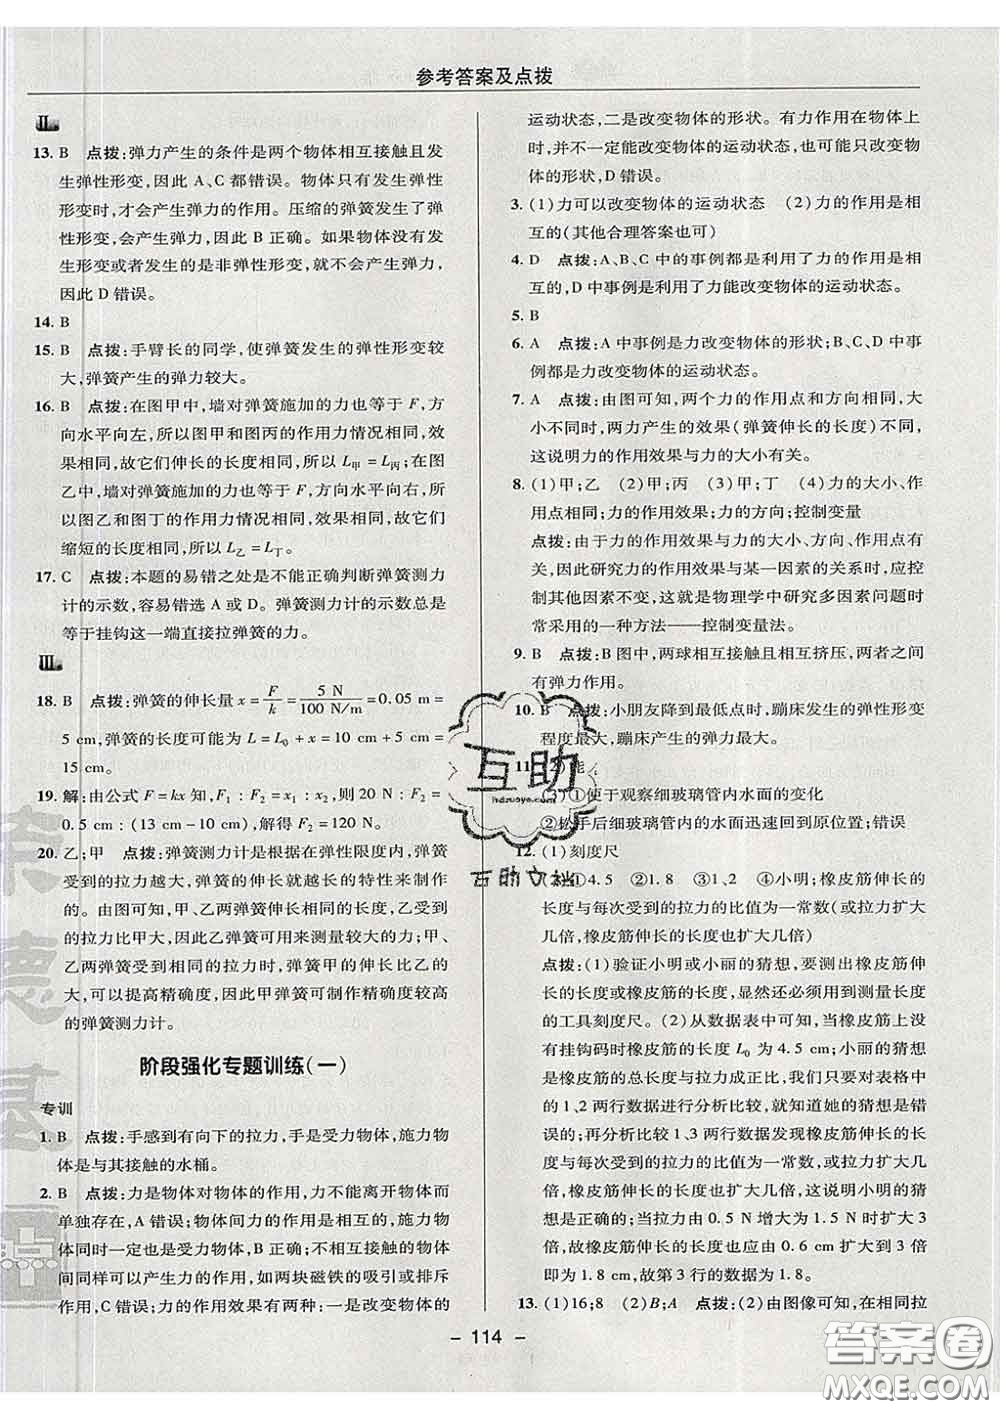 参考答案及点拨
Ⅱ
13. B 点拨:弹力产生的条件是两个物体相互接触且发
生弹性形变,因此 A、C 都错误。物体只有发生弹性
形变时,才会产生弹力的作用。压缩的弹簧发生了弹
性形变,会产生弹力,因此 B 正确。如果物体没有发
生形变或者发生的是非弹性形变,就不会产生弹力,
因此 D 错误。
14. B
15. B 点拨:手臂长的同学,使弹簧发生的弹性形变较
大,弹簧产生的弹力较大。
16. B 点拨:在图甲中,墙对弹簧施加的力也等于 F,方
向水平向左,所以图甲和图丙的作用力情况相同,效
果相同,故它们伸长的长度相同,所以 L甲=L丙;在图
乙中,墙对弹簧施加的力也等于 F,方向水平向右,所
以图乙和图丁的作用力情况相同,效果相同,故它们
缩短的长度相同,所以 L乙=L丁。
17. C 点拨:本题的易错之处是不能正确判断弹簧测力
计的示数,容易错选 A 或 D。弹簧测力计的示数总是
等于挂钩这一端直接拉弹簧的力。
Ⅲ
18. B 点拨:弹簧的伸长量 x=F/k=5 N/100 N/m=0.05 m=
5 cm,弹簧的长度可能为 L=L0+x=10 cm+5 cm=
15 cm。
19. 解:由公式 F=kx 知,F1:F2=x1:x2,则 20 N:F2=
0.5 cm:(13 cm-10 cm),解得 F2=120 N。
20. 乙;甲 点拨:弹簧测力计是根据在弹性限度内,弹簧
受到的拉力越大,弹簧的伸长就越长的特性来制作
的。由图可知,甲、乙两弹簧伸长相同的长度,乙受到
的拉力比甲大,因此乙弹簧可用来测量较大的力;甲、
乙两弹簧受到相同的拉力时,弹簧甲的伸长比乙的
大,可以提高精确度,因此甲弹簧可制作精确度较高
的弹簧测力计。
阶段强化专题训练(一)
专训
1. B 点拨:手感到有向下的拉力,手是受力物体,施力物
体是与其接触的水桶。
2. B 点拨:力是物体对物体的作用,力不能离开物体而
单独存在,A 错误;物体间力的作用是相互的,施力物
体同时一定也是受力物体,B 正确;不相互接触的物体
间同样可以产生力的作用,如两块磁铁的吸引或排斥
作用,C 错误;力的作用效果有两种:一是改变物体的
运动状态,二是改变物体的形状。有力作用在物体上
时,并不一定能改变物体的运动状态,也可能只改变物
体的形状,D 错误。
3. (1)力可以改变物体的运动状态 (2)力的作用是相
互的(其他合理答案也可)
4. D 点拨:A、B、C 中的事例都是利用了力的作用是相
互的,D 中事例是利用了力能改变物体的运动状态。
5. B
6. A 点拨:A 中事例是力改变物体的形状;B、C、D 中事
例都是力改变物体的运动状态。
7. A 点拨:由图可知,两个力的作用点和方向相同,大
小不同时,两力产生的效果(弹簧伸长的长度)不同,
这说明力的作用效果与力的大小有关。
8. (1)甲;乙 (2)甲;丙 (3)甲;丁 (4)力的大小、作
用点相同;力的作用效果;力的方向;控制变量
点拨:由于力的作用效果与力的大小、方向、作用点有
关,因此研究力的作用效果与某一因素的关系时,应
控制其他因素不变,这是物理学中研究多因素问题时
常采用的一种方法——控制变量法。
9. B 点拨:B 图中,两球相互接触且相互挤压,两者之间
有弹力作用。
10. B 点拨:小朋友降到最低点时,蹦床发生的弹性形变
程度最大,蹦床产生的弹力最大。
11. (2)能
(3)①便于观察细玻璃管内水面的变化
②松手后细玻璃管内的水面迅速回到原位置;错误
12. (1)刻度尺
(2)①4.5 ②1.8 ③1、2 ④小明;橡皮筋伸长的
长度与每次受到的拉力的比值为一常数(或拉力扩大
几倍,橡皮筋伸长的长度也扩大几倍)
点拨:(1)验证小明或小丽的猜想,要测出橡皮筋伸
长的长度或橡皮筋的长度,显然还必须用到测量长度
的工具刻度尺。(2)从数据表中可知,当橡皮筋下没
有挂钩码时橡皮筋的长度 L0 为 4.5 cm;小丽的猜想
是橡皮筋的总长度与拉力成正比,我们只要对表格中
的 1、2 两行数据进行分析比较,就知道她的猜想是错
误的;再分析比较 1、3 两行数据发现橡皮筋伸长的长
度与每次受到的拉力的比值为一常数,或拉力扩大几
倍,橡皮筋伸长的长度也扩大几倍,这说明小明的猜
想是正确的;当拉力由 0.5 N 增大为 1.5 N 时,拉力
扩大 3 倍,故橡皮筋伸长的长度应由 0.6 cm 扩大到 3 倍
即为 1.8 cm,故第 3 行的数据为 1.8。
13. (1)16;8 (2)B;A 点拨:(2)由图像可知,在相同拉
- 114 -
互助
hdzuoye.com
互助文档
荣德基
点
答案圈
MXQE.COM